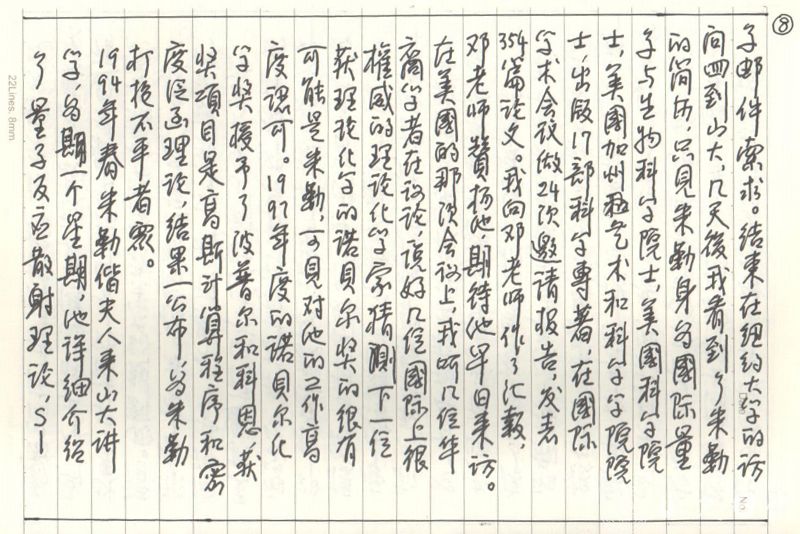 ⑧
子邮件索求。结束在纽约大学的访
问回到山大,几天後我看到了朱勤
的简历,只见朱勤身為國际量
子与生物科学院士,美國科学院
士,美國加州艺术和科学学院院
士,出版17部科学專著,在國际
学术会议做24次邀请报告,发表
354篇论文。我向邓老师作了汇報,
邓老师贊揚他,期待他早日来访。
在美國的那次会议上,我听几位华
裔学者在议论,说好几位國际上很
權威的理论化学家猜測下一位
获理论化学的诺贝尔奖的很有
可能是朱勤,可見对他的工作高
度认可。1997年度的诺贝尔化
学奖授予了波普尔和科恩,获
奖項目是高斯计算程序和密
度泛函理论,结果一公布,為朱勤
打抱不平者眾。
1994年春朱勤偕夫人来山大讲
学,為期一个星期,他详细介绍
了量子反应散射理论,S-
22Lines. 8mm
No.